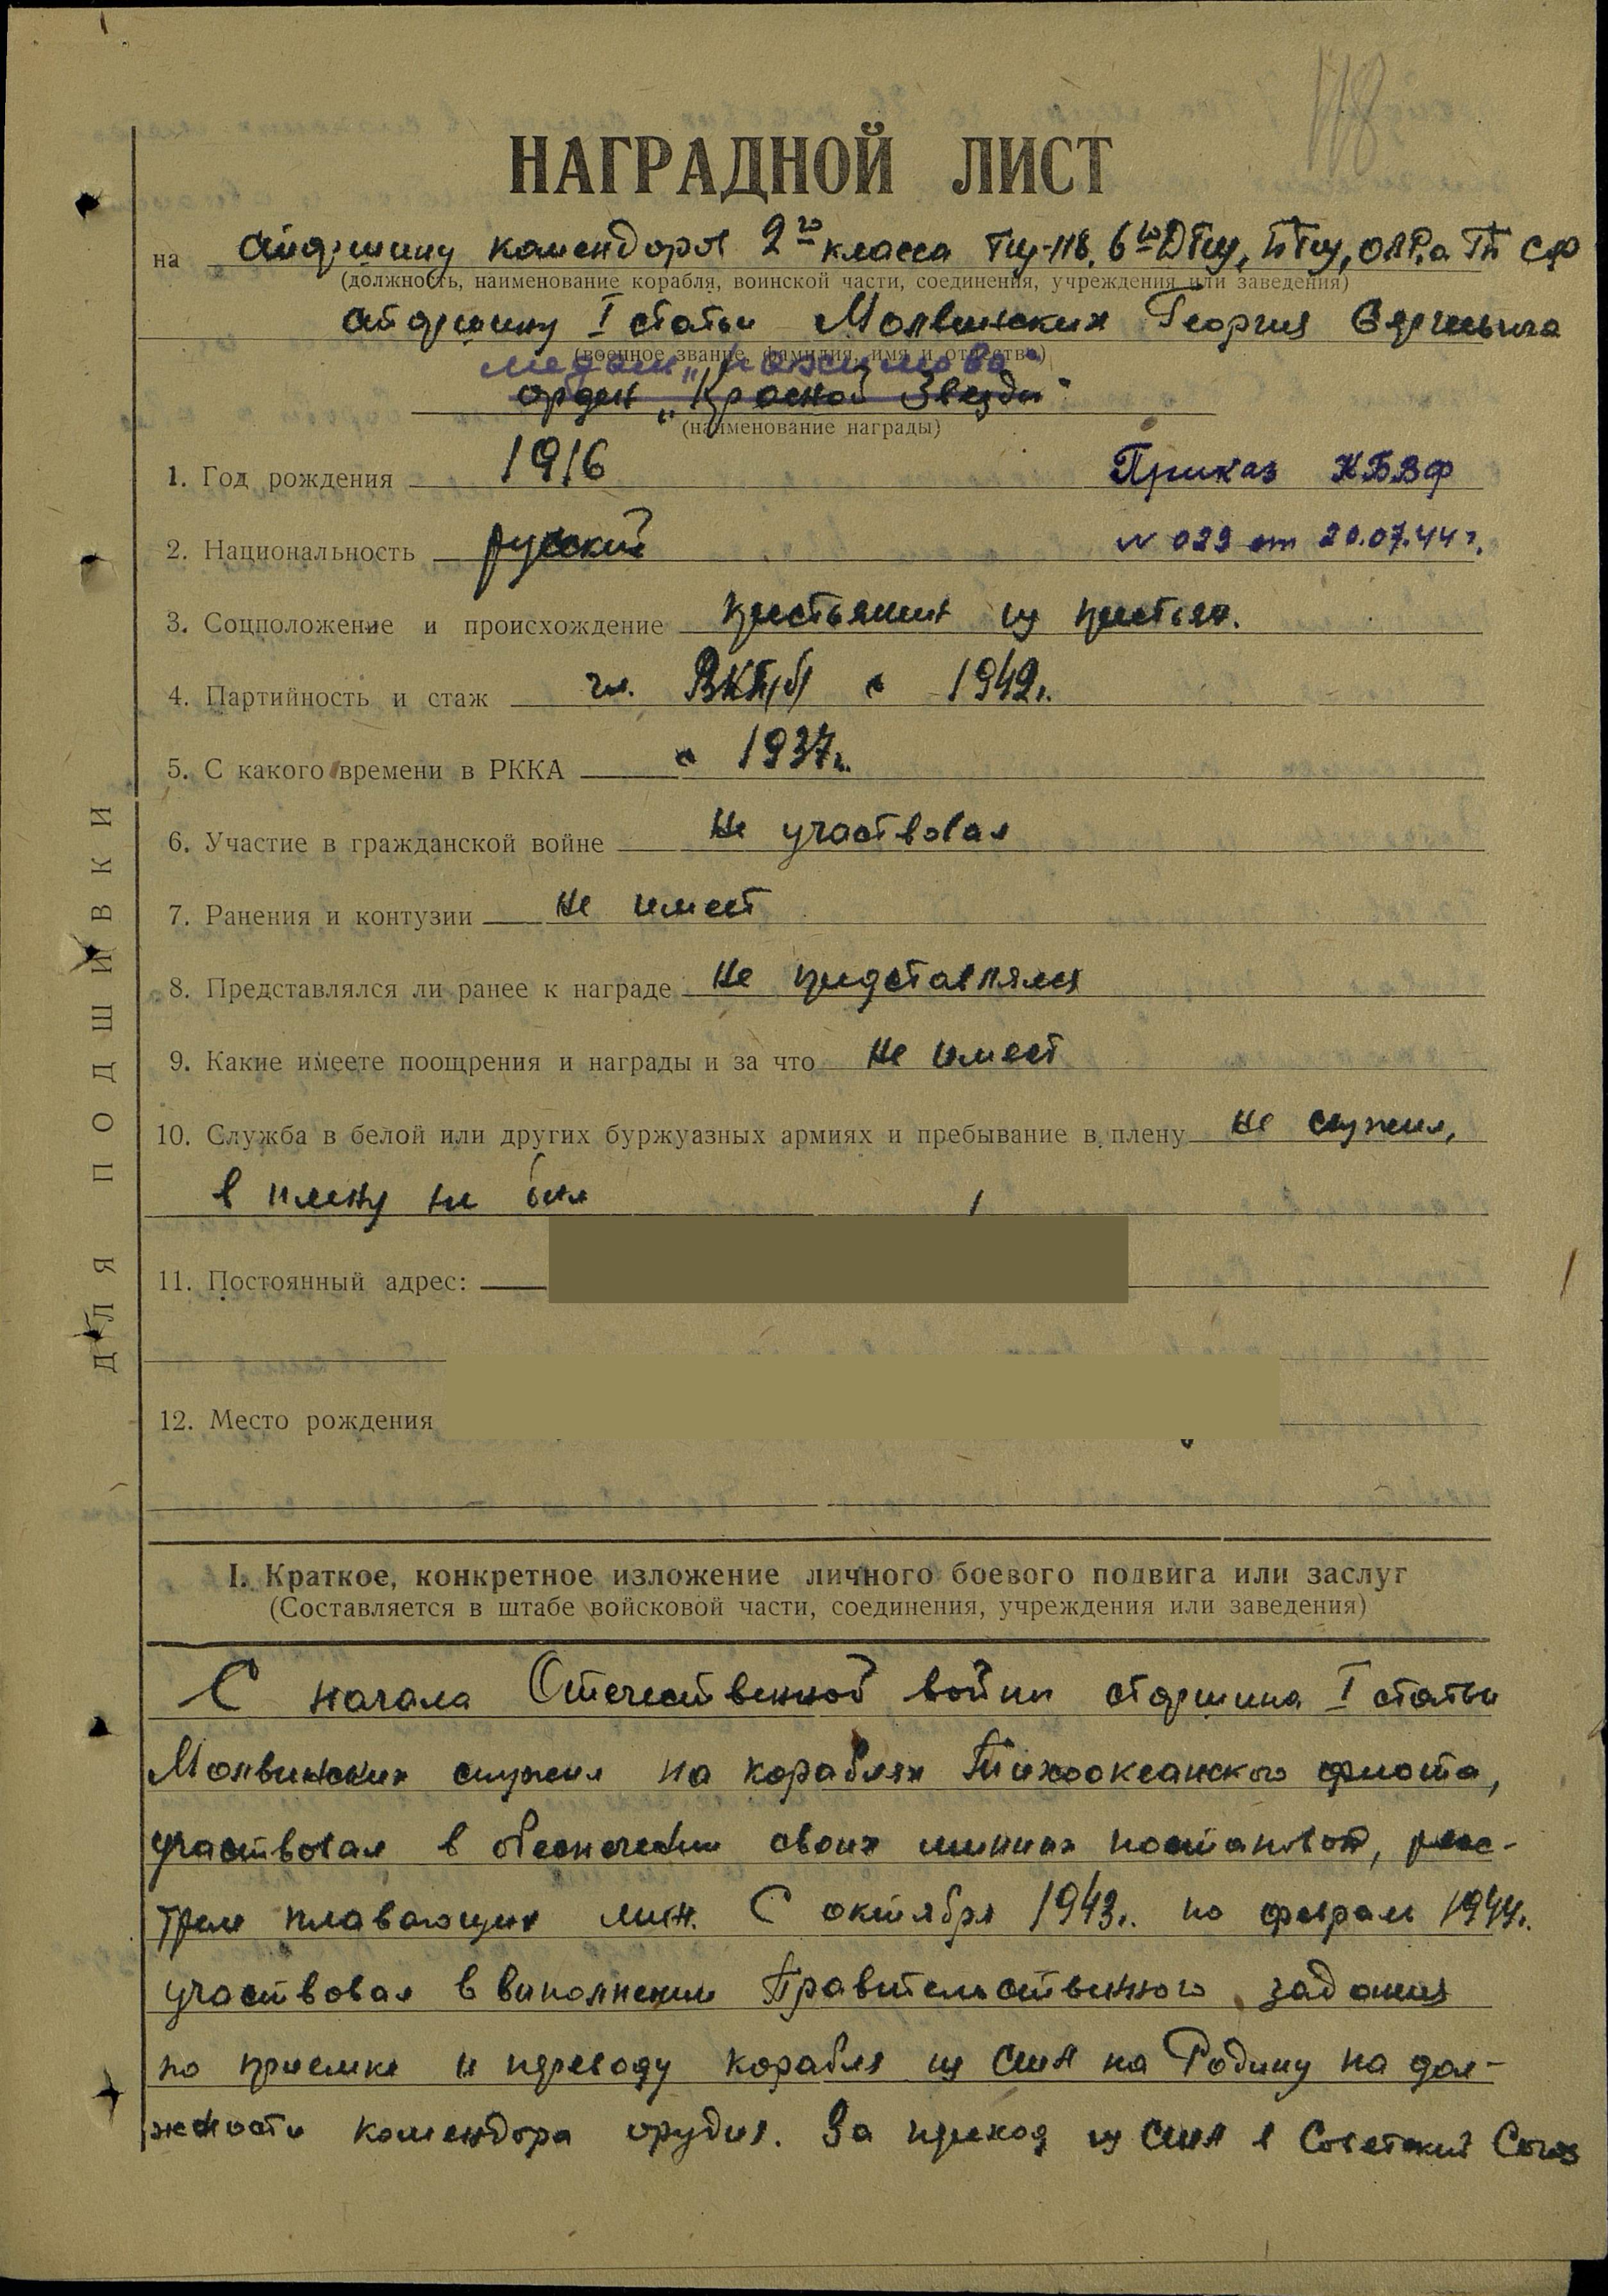 118
НАГРАДНОЙ ЛИСТ
на старшину комендоров 2го класса ТЩ-118, 6го ДТЩ, БТЩ, ОВРа ГБ СФ
(должность, наименование корабля, воинской части, соединения, учреждения или заведения)
старшину I статьи Молвинских Георгия Сергеевича
(военное звание, фамилия, имя и отчество)
медаль „Нахимова"
орден „Красной Звезды"
(наименование награды)
1. Год рождения 1916 Приказ КБВФ
2. Национальность русский N 029 от 20.07.44 г.
3. Соцположение и происхождение крестьянин из крестьян.
4. Партийность и стаж чл. ВКП/б/ с 1942г.
5. С какого времени в РККА с 1937г.
6. Участие в гражданской войне Не участвовал
7. Ранения и контузии Не имеет
8. Представлялся ли ранее к награде Не представлялся
9. Какие имеете поощрения и награды и за что Не имеет
10. Служба в белой или других буржуазных армиях и пребывание в плену Не служил,
в плену не был
11. Постоянный адрес:
12. Место рождения
ДЛЯ ПОДШИВКИ
I. Краткое, конкретное изложение личного боевого подвига или заслуг
(Составляется в штабе войсковой части, соединения, учреждения или заведения)
С начала Отечественной войны старшина I статьи
Молвинских служил на кораблях Тихоокеанского флота,
участвовал в обеспечении своих минных постановок, расс-
трел плавающих мин. С октября 1943г. по февраль 1944г.
участвовал в выполнении Правительственного задания
по приемке и переводу корабля из США на Родину на дол-
жности комендора орудия. За переход из США в Советский Союз